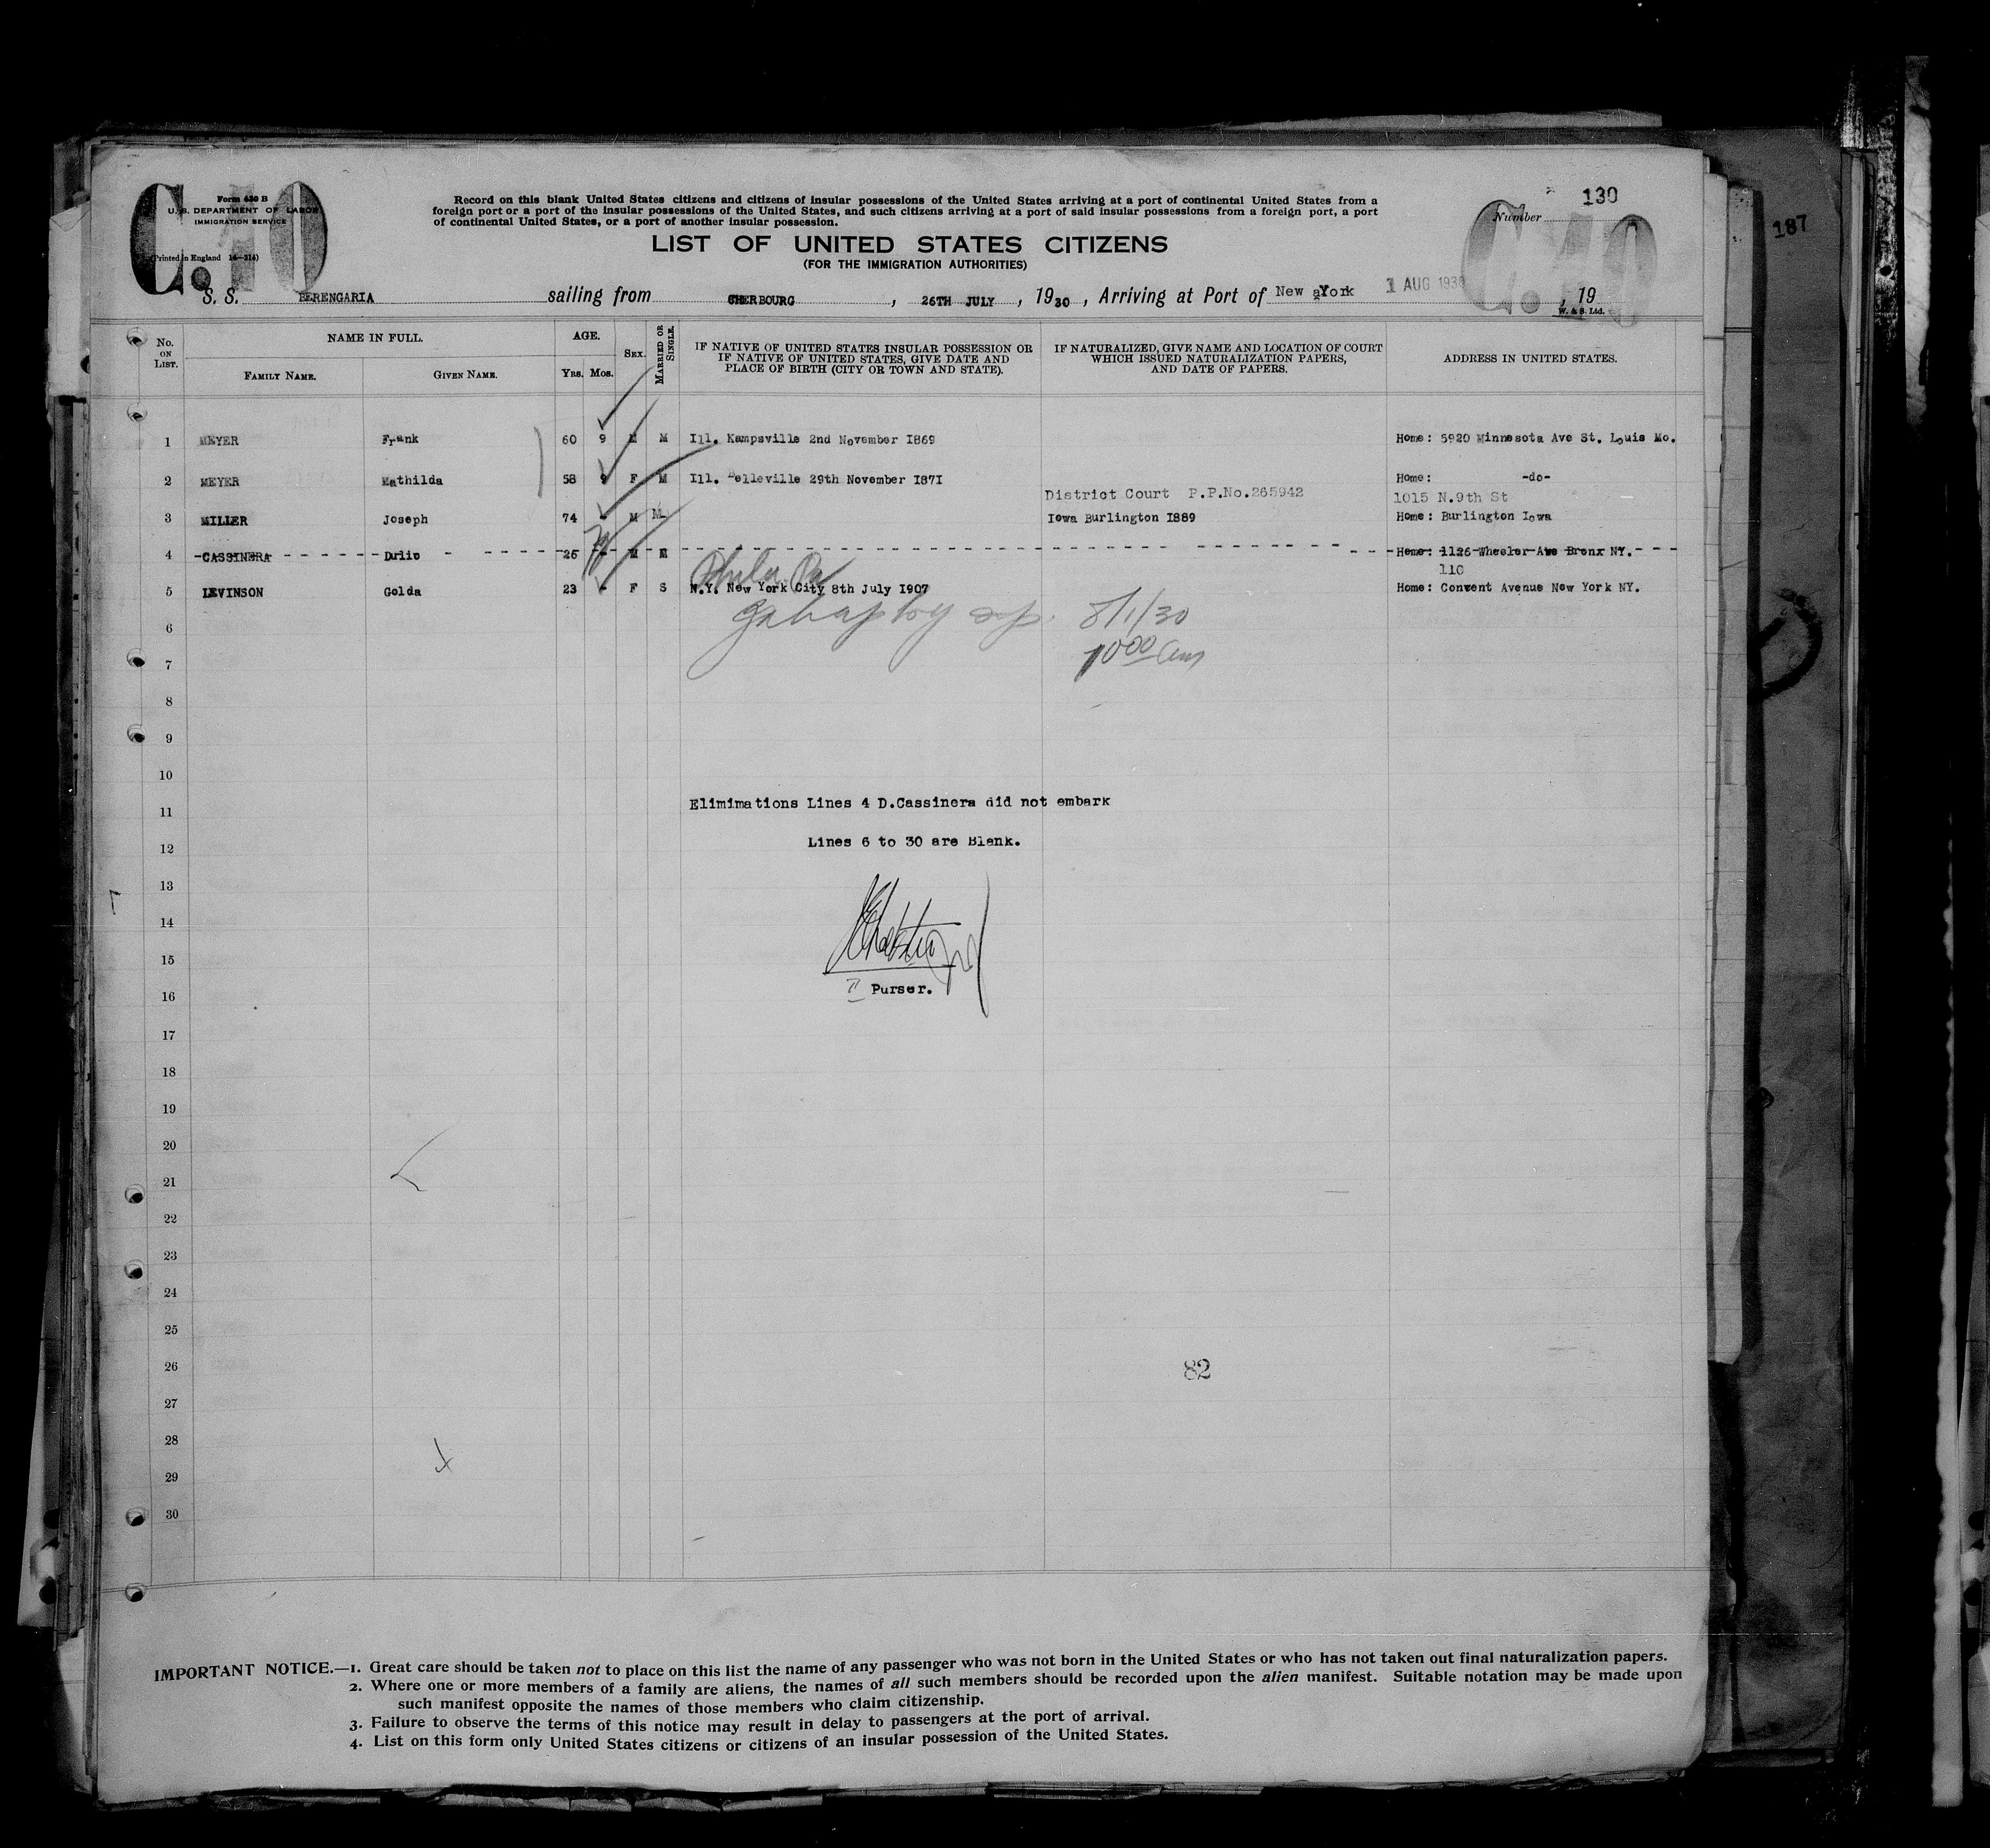 C. 10
Form 430 B
U. S. DEPARTMENT OF LABOR
IMMIGRATION SERVICE
(Printed in England 14—214)
Record on this blank United States citizens and citizens of insular possessions of the United States arriving at a port of continental United States from a
foreign port or a port of the insular possessions of the United States, and such citizens arriving at a port of said insular possessions from a foreign port, a port
of continental United States, or a port of another insular possession.
Number 130
C. 10
187
LIST OF UNITED STATES CITIZENS
(FOR THE IMMIGRATION AUTHORITIES)
S. S. BERENGARIA sailing from CHERBOURG, 26TH JULY, 1930, Arriving at Port of New York 1 AUG 1930, 19
W. & S. Ltd.
No. ON LIST. NAME IN FULL. AGE. SEX. MARRIED OR SINGLE. IF NATIVE OF UNITED STATES INSULAR POSSESSION OR IF NATIVE OF UNITED STATES, GIVE DATE AND PLACE OF BIRTH (CITY OR TOWN AND STATE). IF NATURALIZED, GIVE NAME AND LOCATION OF COURT WHICH ISSUED NATURALIZATION PAPERS, AND DATE OF PAPERS. ADDRESS IN UNITED STATES.
FAMILY NAME. GIVEN NAME. YRS. MOS.
1 MEYER Frank 60 9 M M Ill. Kampsville 2nd November I869 Home: 5920 Minnesota Ave St. Louis Mo.
2 MEYER Mathilda 58 9 F M Ill. Belleville 29th November I87I Home: -do-
District Court P.P.No.265942 1015 N.9th St
3 MILLER Joseph 74 - M M Iowa Burlington I889 Home: Burlington Iowa
4 CASSINERA Dulio 26 - M M Home: 1126 Wheeler Ave Bronx NY.
Phila. Pa 110
5 LEVINSON Golda 23 - F S N.Y. New York City 8th July I907 Home: Convent Avenue New York NY.
6 8/1/30
7 10 00 am
8
9
10
Elimimations Lines 4 D.Cassinera did not embark
11
Lines 6 to 30 are Blank.
12
13
14
15
II Purser.
16
17
18
19
20
21
22
23
24
25
26 82
27
28
29
30
IMPORTANT NOTICE.—1. Great care should be taken not to place on this list the name of any passenger who was not born in the United States or who has not taken out final naturalization papers.
2. Where one or more members of a family are aliens, the names of all such members should be recorded upon the alien manifest. Suitable notation may be made upon
such manifest opposite the names of those members who claim citizenship.
3. Failure to observe the terms of this notice may result in delay to passengers at the port of arrival.
4. List on this form only United States citizens or citizens of an insular possession of the United States.